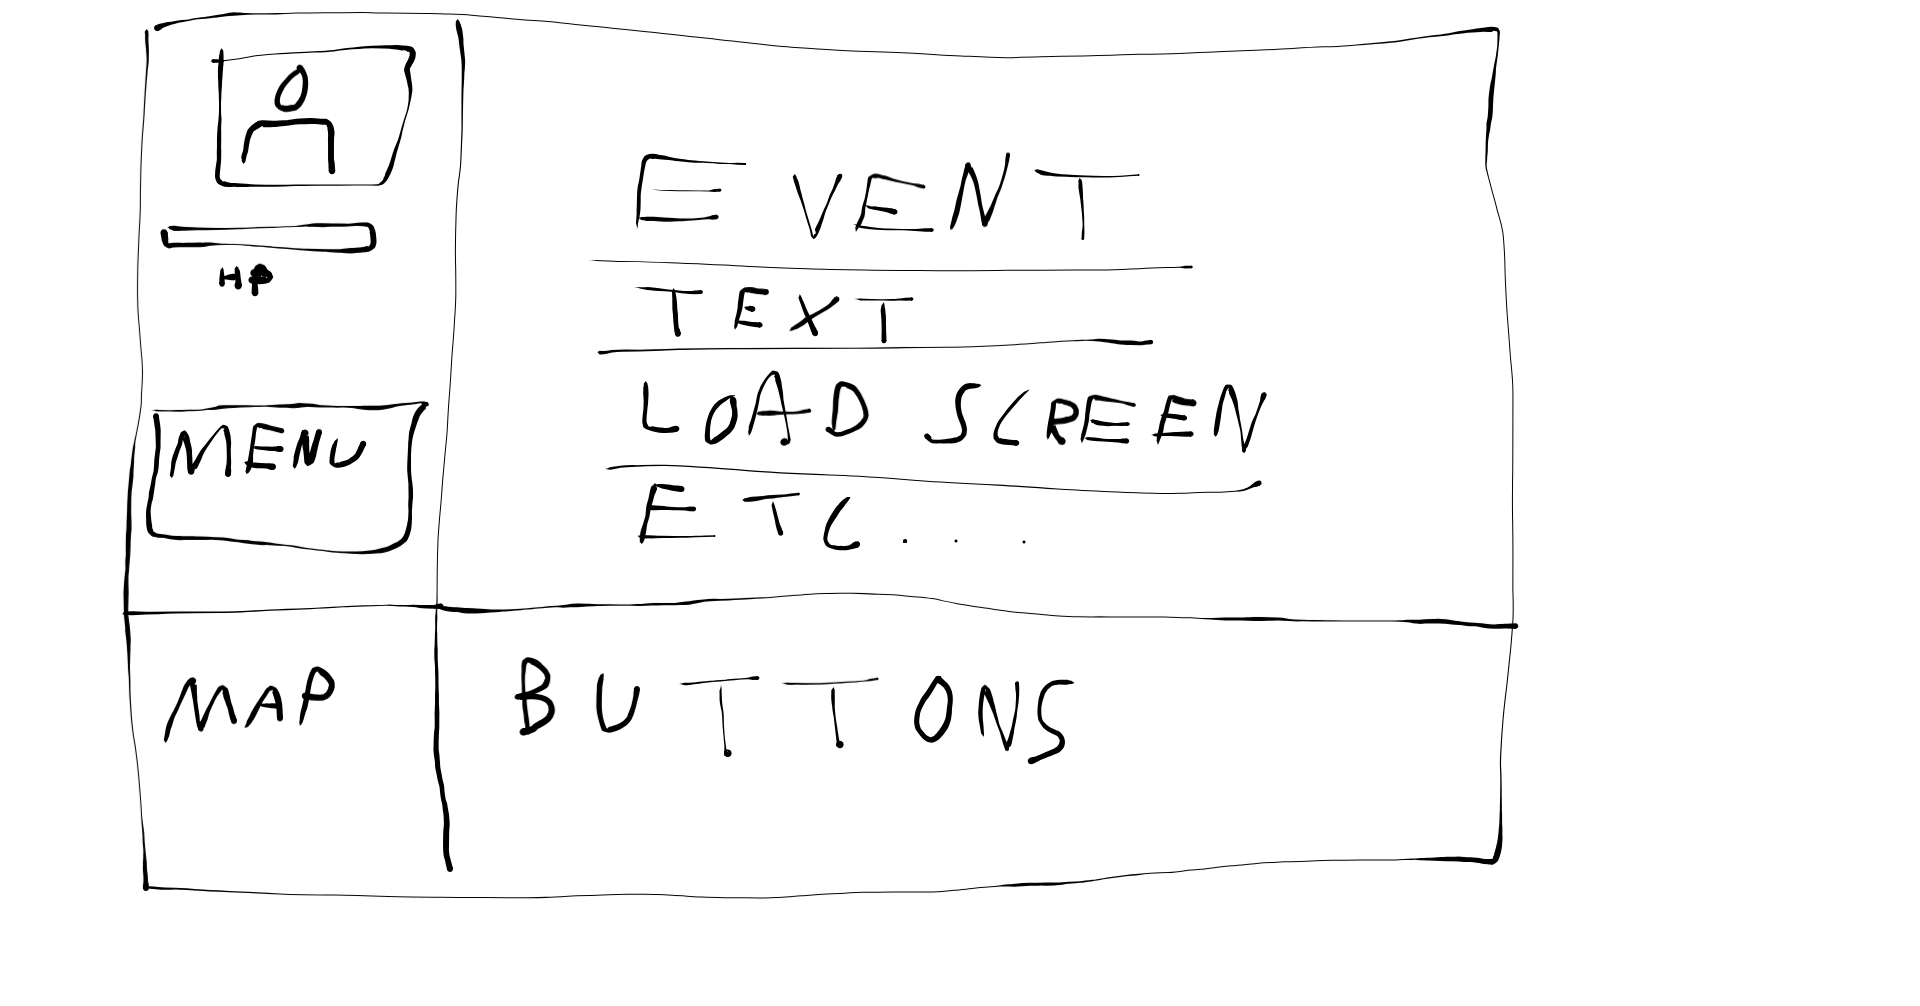 HP
MENU
EVENT
TEXT
LOAD SCREEN
ETC...
MAP
BUTTONS